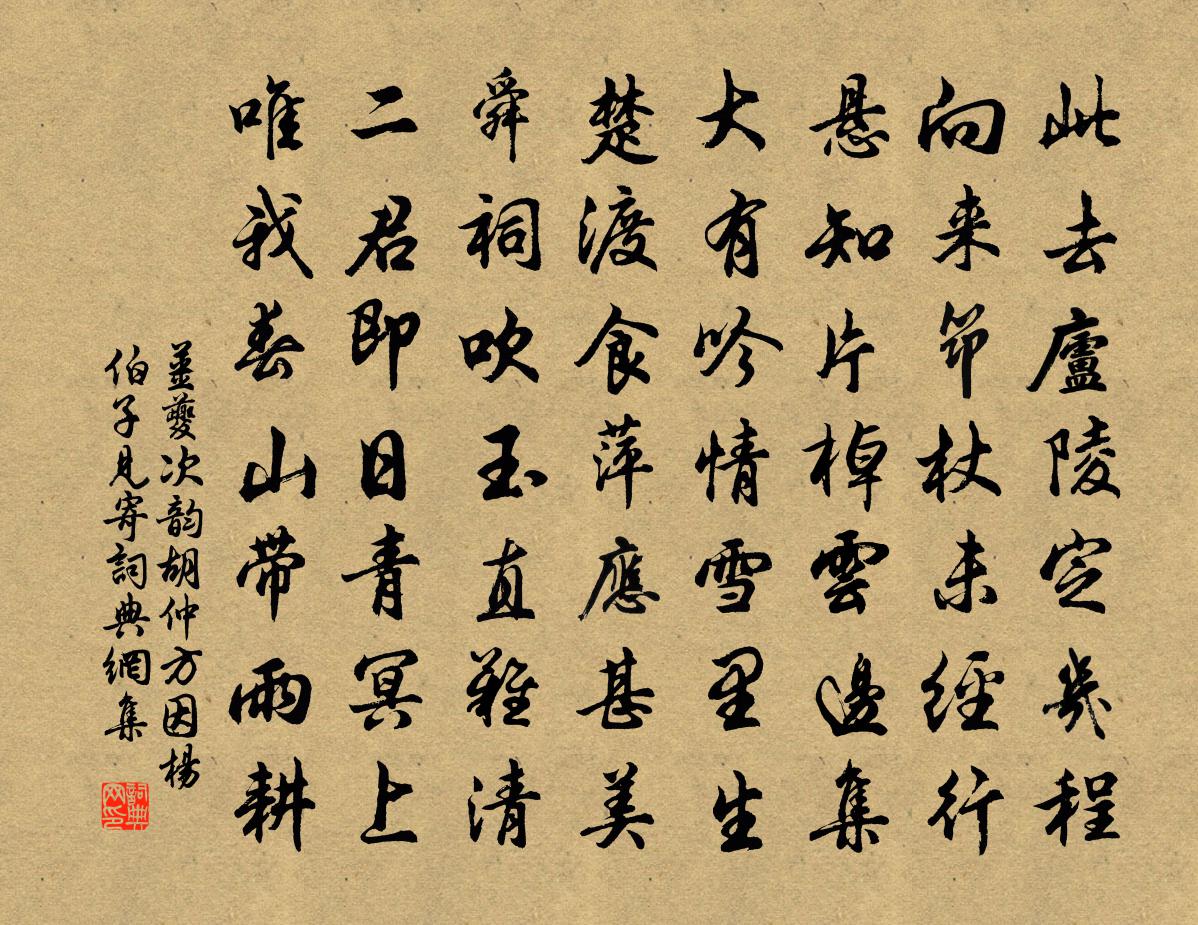 此去廬陵定幾程
向来笻杖未經行
悬知片棹雲邊集
大有吟情雪里生
楚渡食萍應甚美
舜祠吹玉直難清
二君即日青冥上
唯我春山带雨耕
姜夔次韵胡仲方因楊
伯子見寄詞典網集
詞典
网印